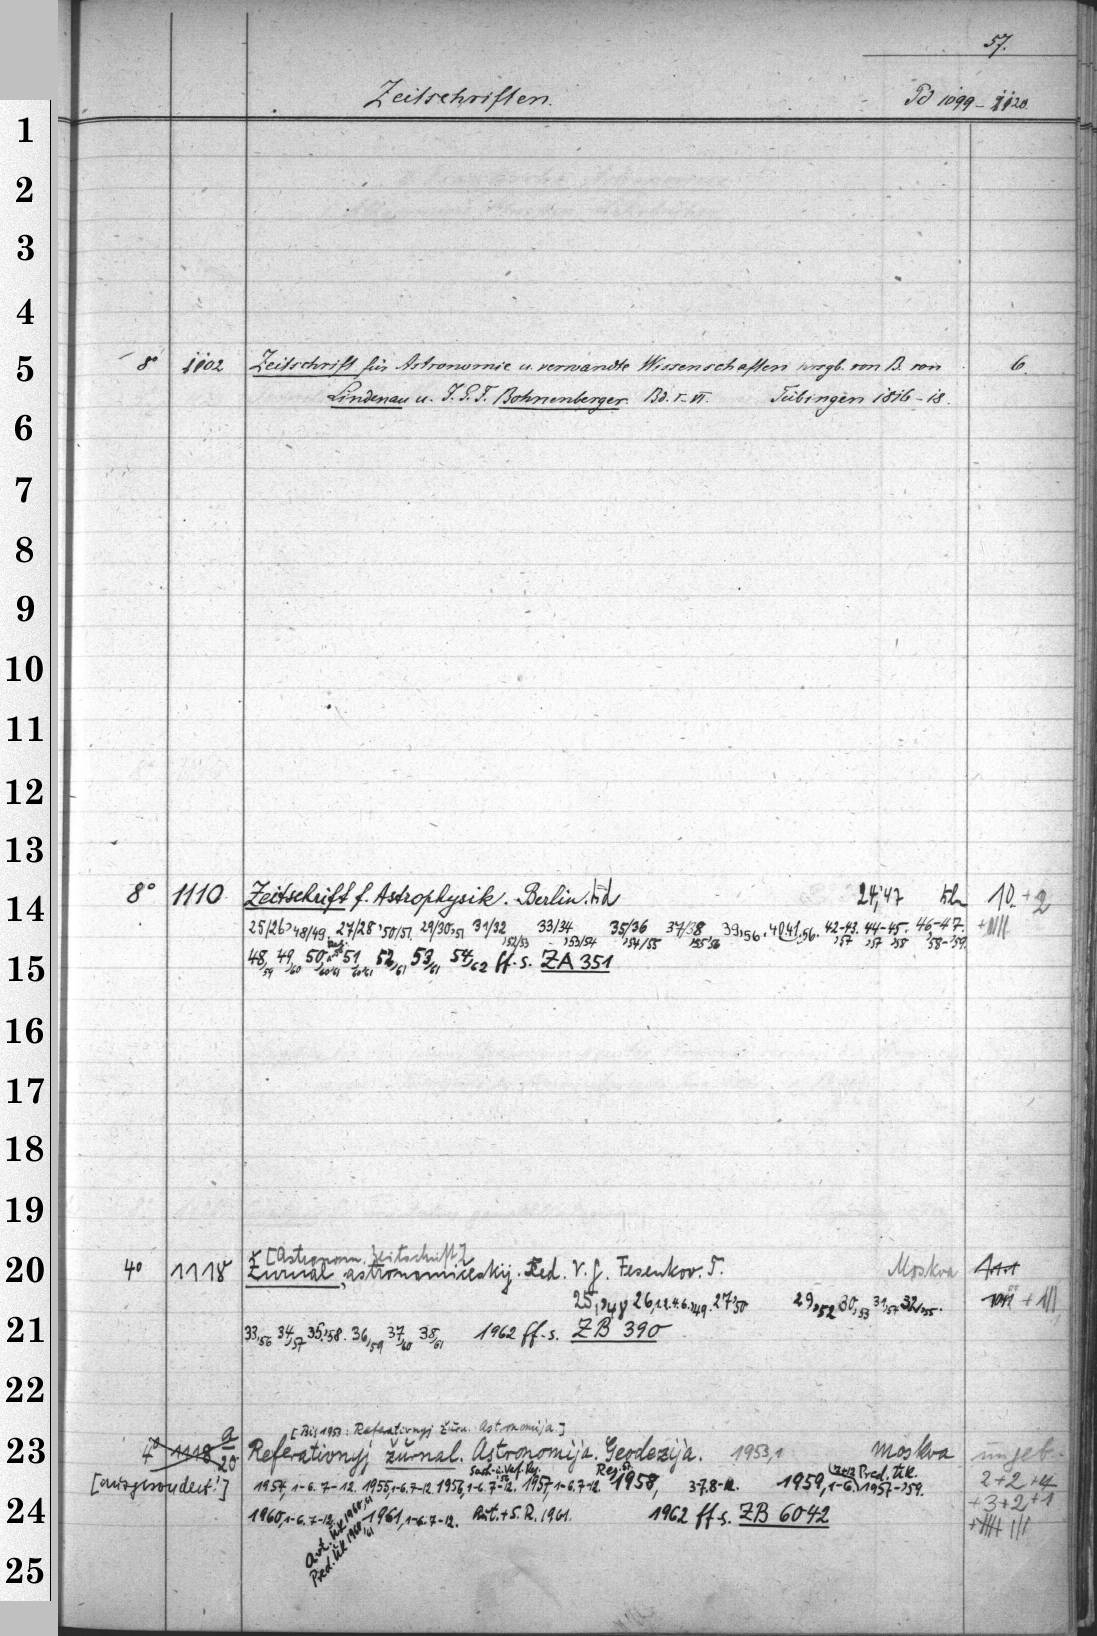 57.
Zeitschriften. Pd 1099 - 1120
1
2
3
4
5 8° 1102 Zeitschrift für Astronomie u. verwandte Wissenschaften hrsgb. von B. von 6.
Lindenau u. J. G. F. Bohnenberger. Bd. I-VI. Tübingen 1816-18.
6
7
8
9
10
11
12
13
14 8° 1110 Zeitschrift f. Astrophysik. Berlin. 24,'47 10. + 2
25/26,'48/49. 27/28,'50/51. 29/30,'51 31/32,'52/53 33/34,'53/54 35/36,'54/55 37/38,'55/56 39,'56. 40.41,'56. 42-43,'57 44-45,'57,'58 46-47,'58-'59
15 48,59 49,60 50,60/61 51,60/61 52,61 53,61 54,62 ff. s. ZA 351
16
17
18
19
[Astronom. Zeitschrift]
20 4° 1118 Žurnal, astronomičeskij. Red. V. G. Fesenkov. T. Moskva
25,'48 26,12.4.6.'49. 27,'50 29,'52 30,'53 31,'57 32,'55.
21 33,'56 34,'57 35,'58. 36,'59 37,'60 38,'61 1962 ff. s. ZB 390
22
[Bis 1953: Referativnyj Žurn. Astronomija.]
23 4° 1118 a/20 Referativnyj žurnal. Astronomija. Geodezija. 1953,1 Moskva ungeb.
[ausgesondert!] 1957, 1-6. 7-12. 1955, 1-6. 7-12. 1956, 1-6. 7-12. 1957, 1-6. 7-12. 1958, 3-7. 8-12. 1959, 1-6. Pred. uk. 1957-'59. 2+2+4
+3+2+1
24 1960, 1-6. 7-12. 1961, 1-6. 7-12. 1961. 1962 ff. s. ZB 6042
Avt. uk. 1960,61
Pred. uk. 1960,61
25